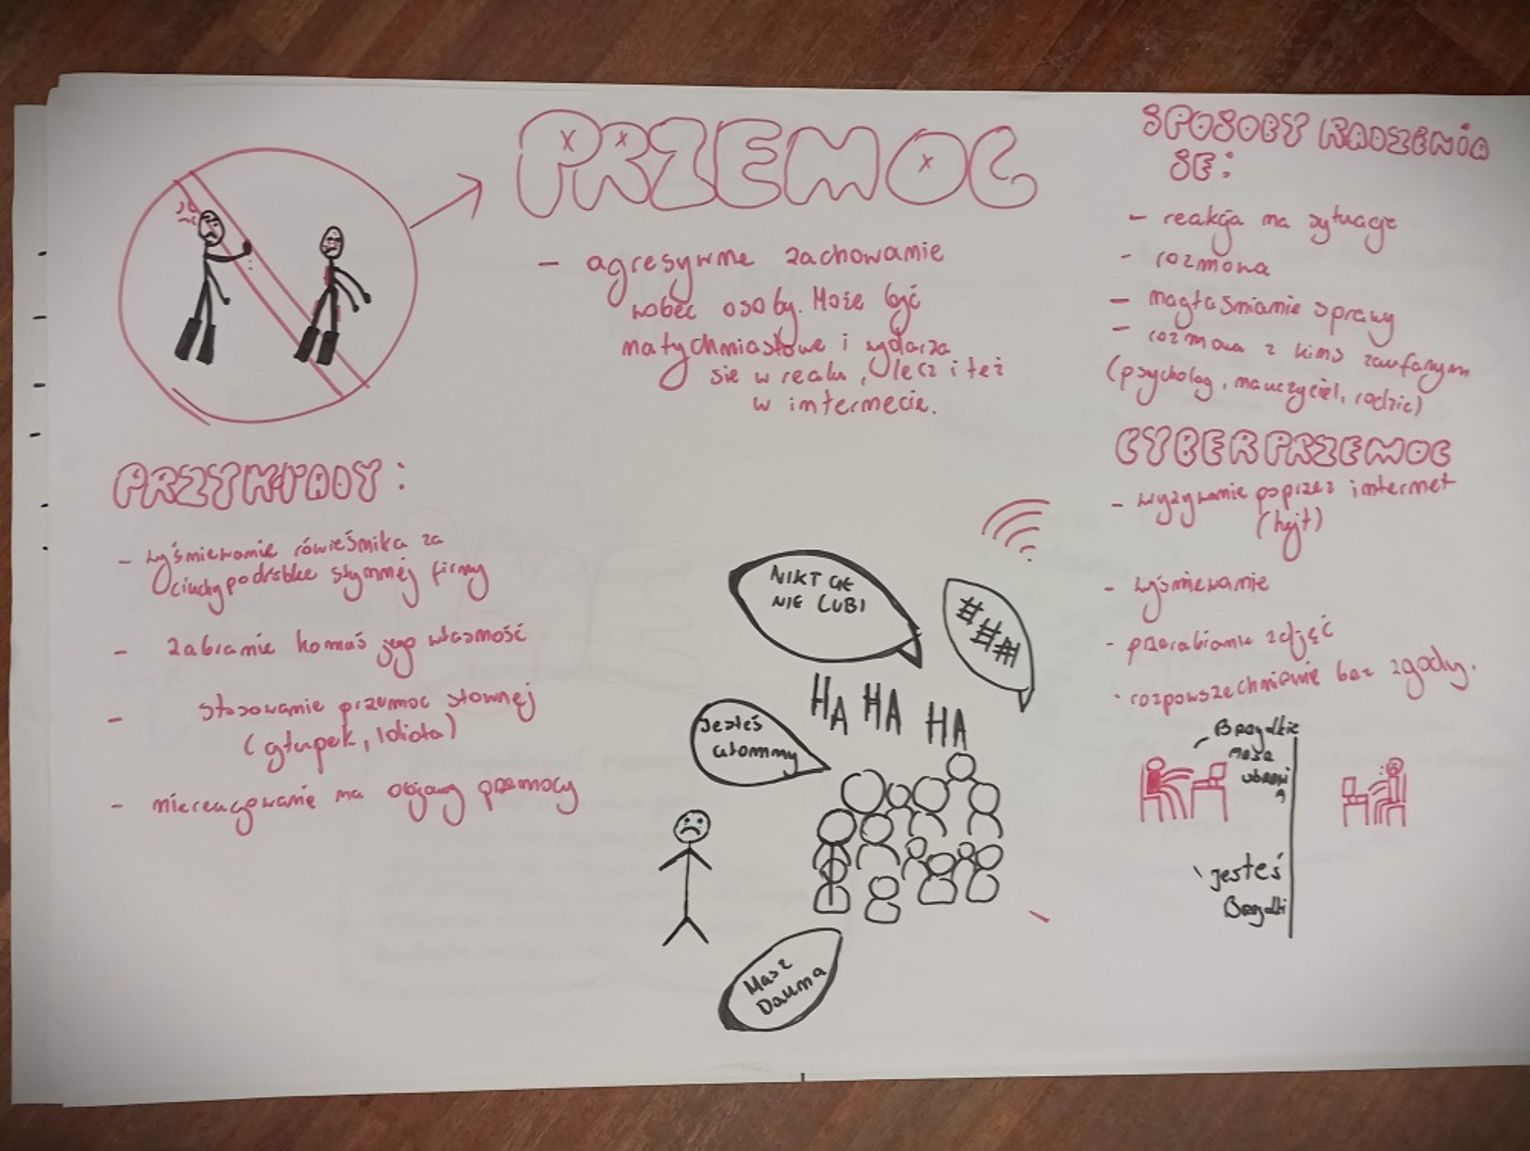 PRZEMOC
- agresywne zachowanie
wobec osoby. Może być
natychmiastowe i wydarza
się w realu, lecz i też
w internecie.
PRZYKŁADY:
- wyśmiewanie rówieśnika za
ciuchy podróbke słynnej firmy
- zabranie komuś jego własność
- stosowanie przemoc słownej
(głupek, Idiota)
- niereagowanie na objawy przemocy
NIKT CIE
NIE LUBI
###
HA HA HA
Jesteś
ułomny
Masz
Dauna
SPOSOBY RADZENIA
SE:
- reakcja na sytuacje
- rozmowa
- nagłaśnianie sprawy
- rozmowa z kimś zaufanym
(psycholog, nauczyciel, rodzic)
CYBERPRZEMOC
- wyzywanie poprzez internet
(hejt)
- wyśmiewanie
- przerabianie zdjęć
- rozpowszechnienie bez zgody.
- Brzydkie
masz
ubrani
- jesteś
Brzydki